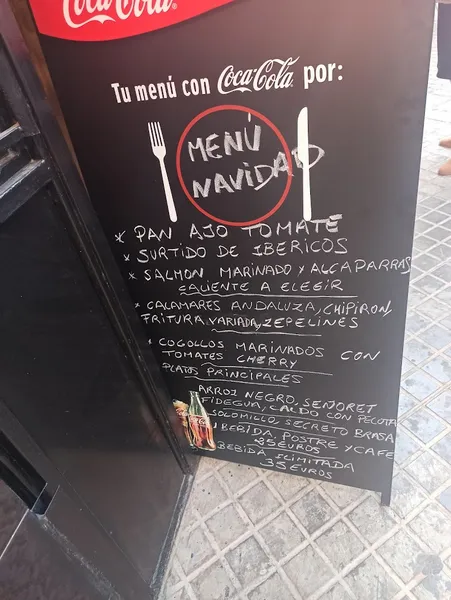 Coca-Cola
Tu menú con Coca-Cola por:
MENÚ
NAVIDAD
* PAN AJO TOMATE
* SURTIDO DE IBERICOS
* SALMON MARINADO Y ALCAPARRAS
CALIENTE A ELEGIR
* CALAMARES ANDALUZA, CHIPIRON
FRITURA VARIADA, ZEPELINES
* COGOLLOS MARINADOS CON
TOMATES CHERRY
PLATOS PRINCIPALES
ARROZ NEGRO, SEÑORET
FIDEGUA, CALDO CON PELOTA
SOLOMILLO, SECRETO BRASA
1 BEBIDA, POSTRE Y CAFE
25 EUROS
BEBIDA ILIMITADA
35 EUROS